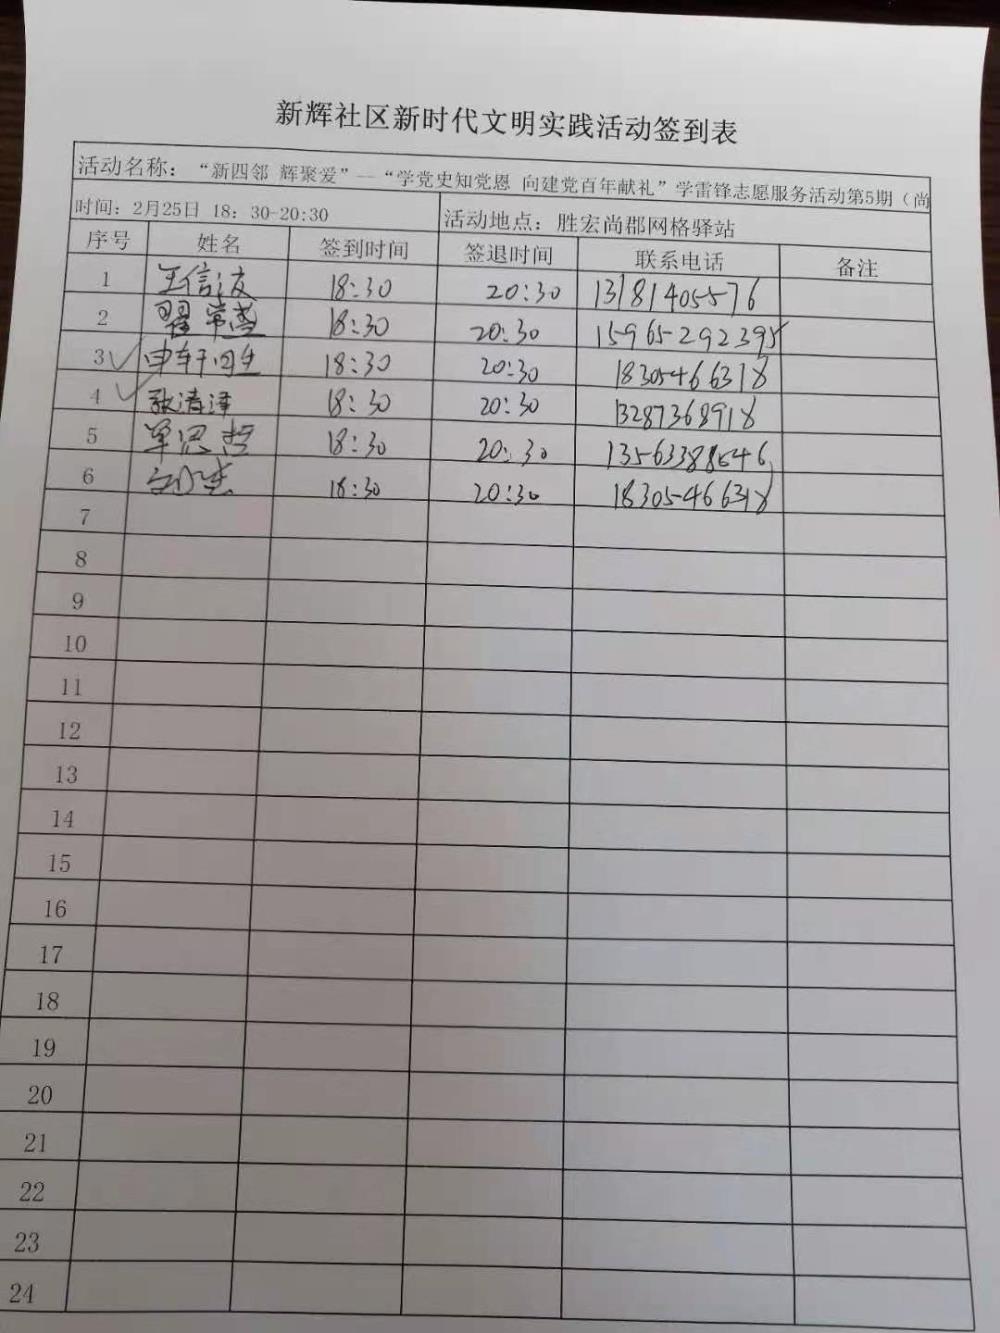 新辉社区新时代文明实践活动签到表
活动名称：“新四邻 辉聚爱”—“学党史知党恩 向建党百年献礼”学雷锋志愿服务活动第5期（尚
时间：2月25日 18：30-20:30 活动地点：胜宏尚郡网格驿站
序号 姓名 签到时间 签退时间 联系电话 备注
1 王信友 18:30 20:30 13181405576
2 翟常 18:30 20:30 15965292395
3 18:30 20:30 18305466318
4 清泽 18:30 20:30 13287368918
5 单思 18:30 20:30 13563388646
6 18:30 20:30 18305466318
7
8
9
10
11
12
13
14
15
16
17
18
19
20
21
22
23
24